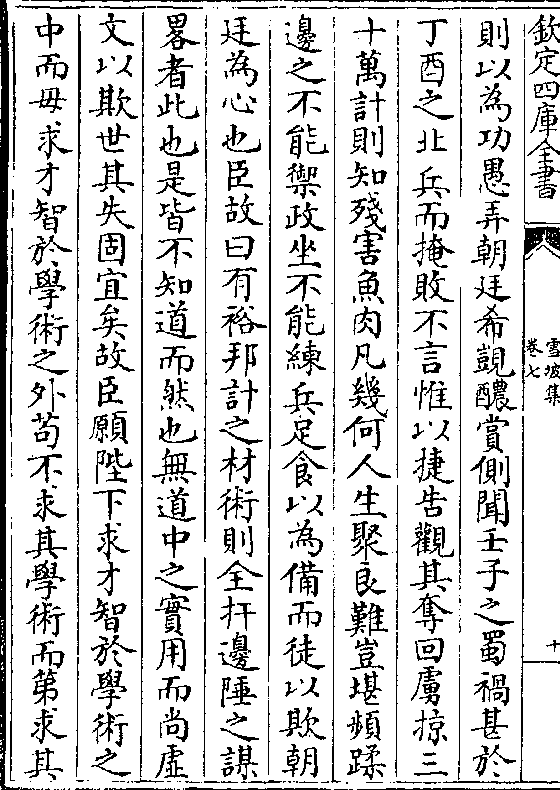 欽定四庫全書
雪坡集
卷七
十
則以為功愚弄朝廷希覬醲賞側聞壬子之蜀禍甚於
丁酉之北兵而掩敗不言惟以捷告觀其奪回虜掠三
十萬計則知殘害魚肉凡幾何人生聚良難豈堪頻蹂
邊之不能禦政坐不能練兵足食以為備而徒以欺朝
廷為心也臣故曰有裕邦計之材術則全扞邊陲之謀
畧者此也是皆不知道而然也無道中之實用而尚虛
文以欺世其失固宜矣故臣願陛下求才智於學術之
中而毋求才智於學術之外苟不求其學術而第求其